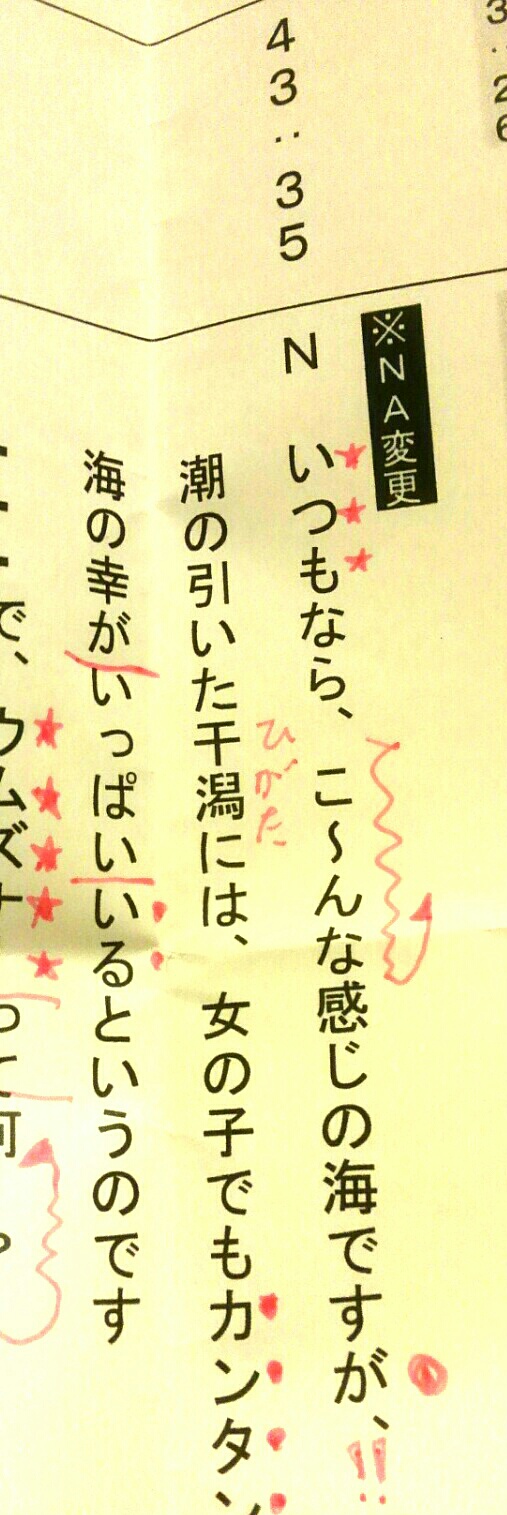 43:35
※NA変更
N いつもなら、こ～んな感じの海ですが、!!
潮の引いた干潟には、女の子でもカンタン
ひがた
海の幸がいっぱいいるというのです